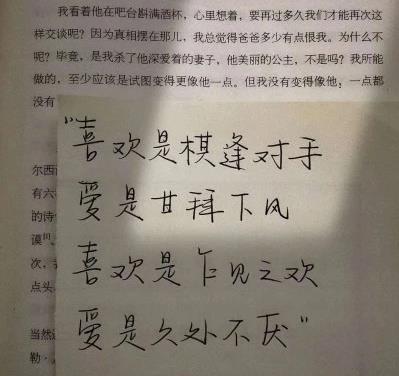 我看着他在吧台斟满酒杯，心里想着，要再过多久我们才能再次这
样交谈呢？因为真相摆在那儿，我总觉得爸爸多少有点恨我。为什么不
呢？毕竟，是我杀了他深爱着的妻子，他美丽的公主，不是吗？我所能
做的，至少应该是试图变得更像他一点。但我没有变得像他，一点都
没有
"喜欢是棋逢对手
尔西
爱是甘拜下风
有六
的诗
谟
喜欢是乍见之欢
次，
点头
爱是久处不厌"
当然
勒·